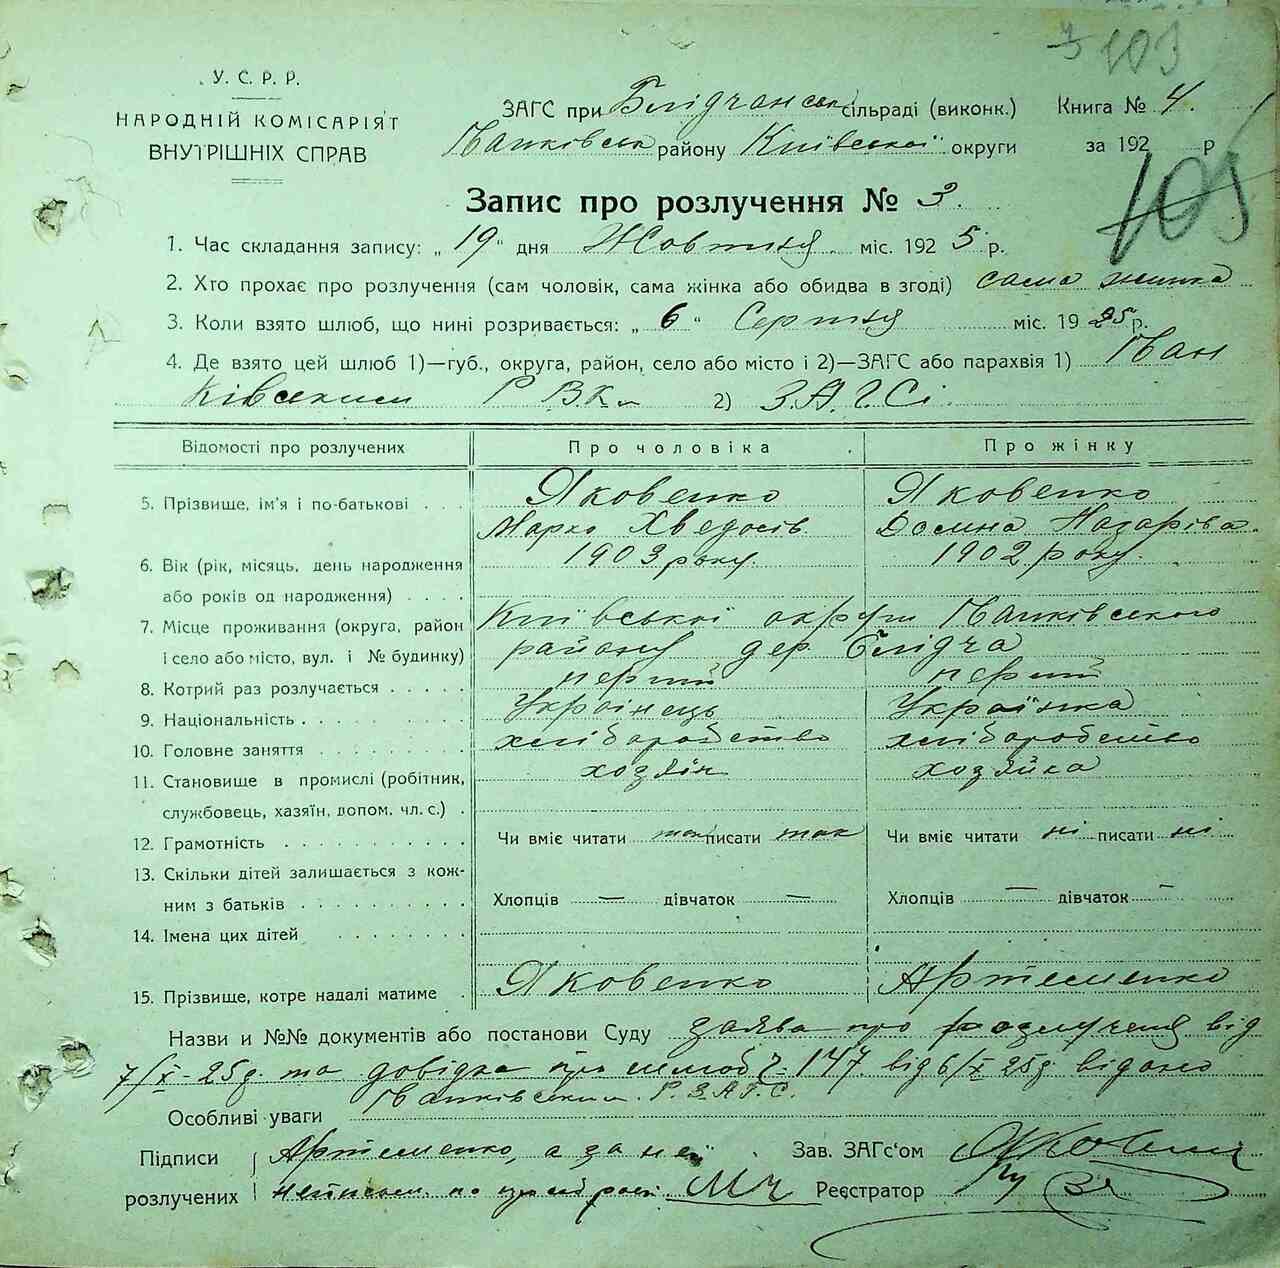 103
У. С. Р. Р.
НАРОДНІЙ КОМІСАРІЯТ
ВНУТРІШНІХ СПРАВ
ЗАГС при Білідчанськ сільраді (виконк.) Книга № 4.
району Київської округи за 192 р
105
Запис про розлучення № 3.
1. Час складання запису: „19" дня Жовтня міс. 1925 р.
2. Хто прохає про розлучення (сам чоловік, сама жінка або обидва в згоді) сама жинка
3. Коли взято шлюб, що нині розривається: „6" Серпня міс. 1925 р.
4. Де взято цей шлюб 1)—губ., округа, район, село або місто і 2)—ЗАГС або парахвія 1)
2) З.А.Г.Сі.
Відомості про розлучених Про чоловіка Про жінку
5. Прізвище, ім'я і по-батькові Яковенко Яковенко
Марко Хведосів Домна Назаріва
6. Вік (рік, місяць, день народження 1903 року. 1902 року.
або років од народження)
7. Місце проживання (округа, район Київської округи
і село або місто, вул. і № будинку) району дер. Білідча
8. Котрий раз розлучається перший перший
9. Національність Українець Українка
10. Головне заняття хліборобство хліборобство
11. Становище в промислі (робітник, хозяін хозяйка
службовець, хазяїн, допом. чл. с.)
12. Грамотність Чи вміє читати так писати так Чи вміє читати ні писати ні
13. Скільки дітей залишається з кож-
ним з батьків Хлопців — дівчаток — Хлопців — дівчаток —
14. Імена цих дітей
15. Прізвище, котре надалі матиме Яковенко Артеменко
Назви и №№ документів або постанови Суду заява про розлученя від
7/X-25р. та довідка про шлюб ч. 147 від 6/X 25р. видано
Р.З.А.Г.С.
Особливі уваги
Підписи Артеменко, а за неї Зав. ЗАГс'ом
розлучених Реєстратор